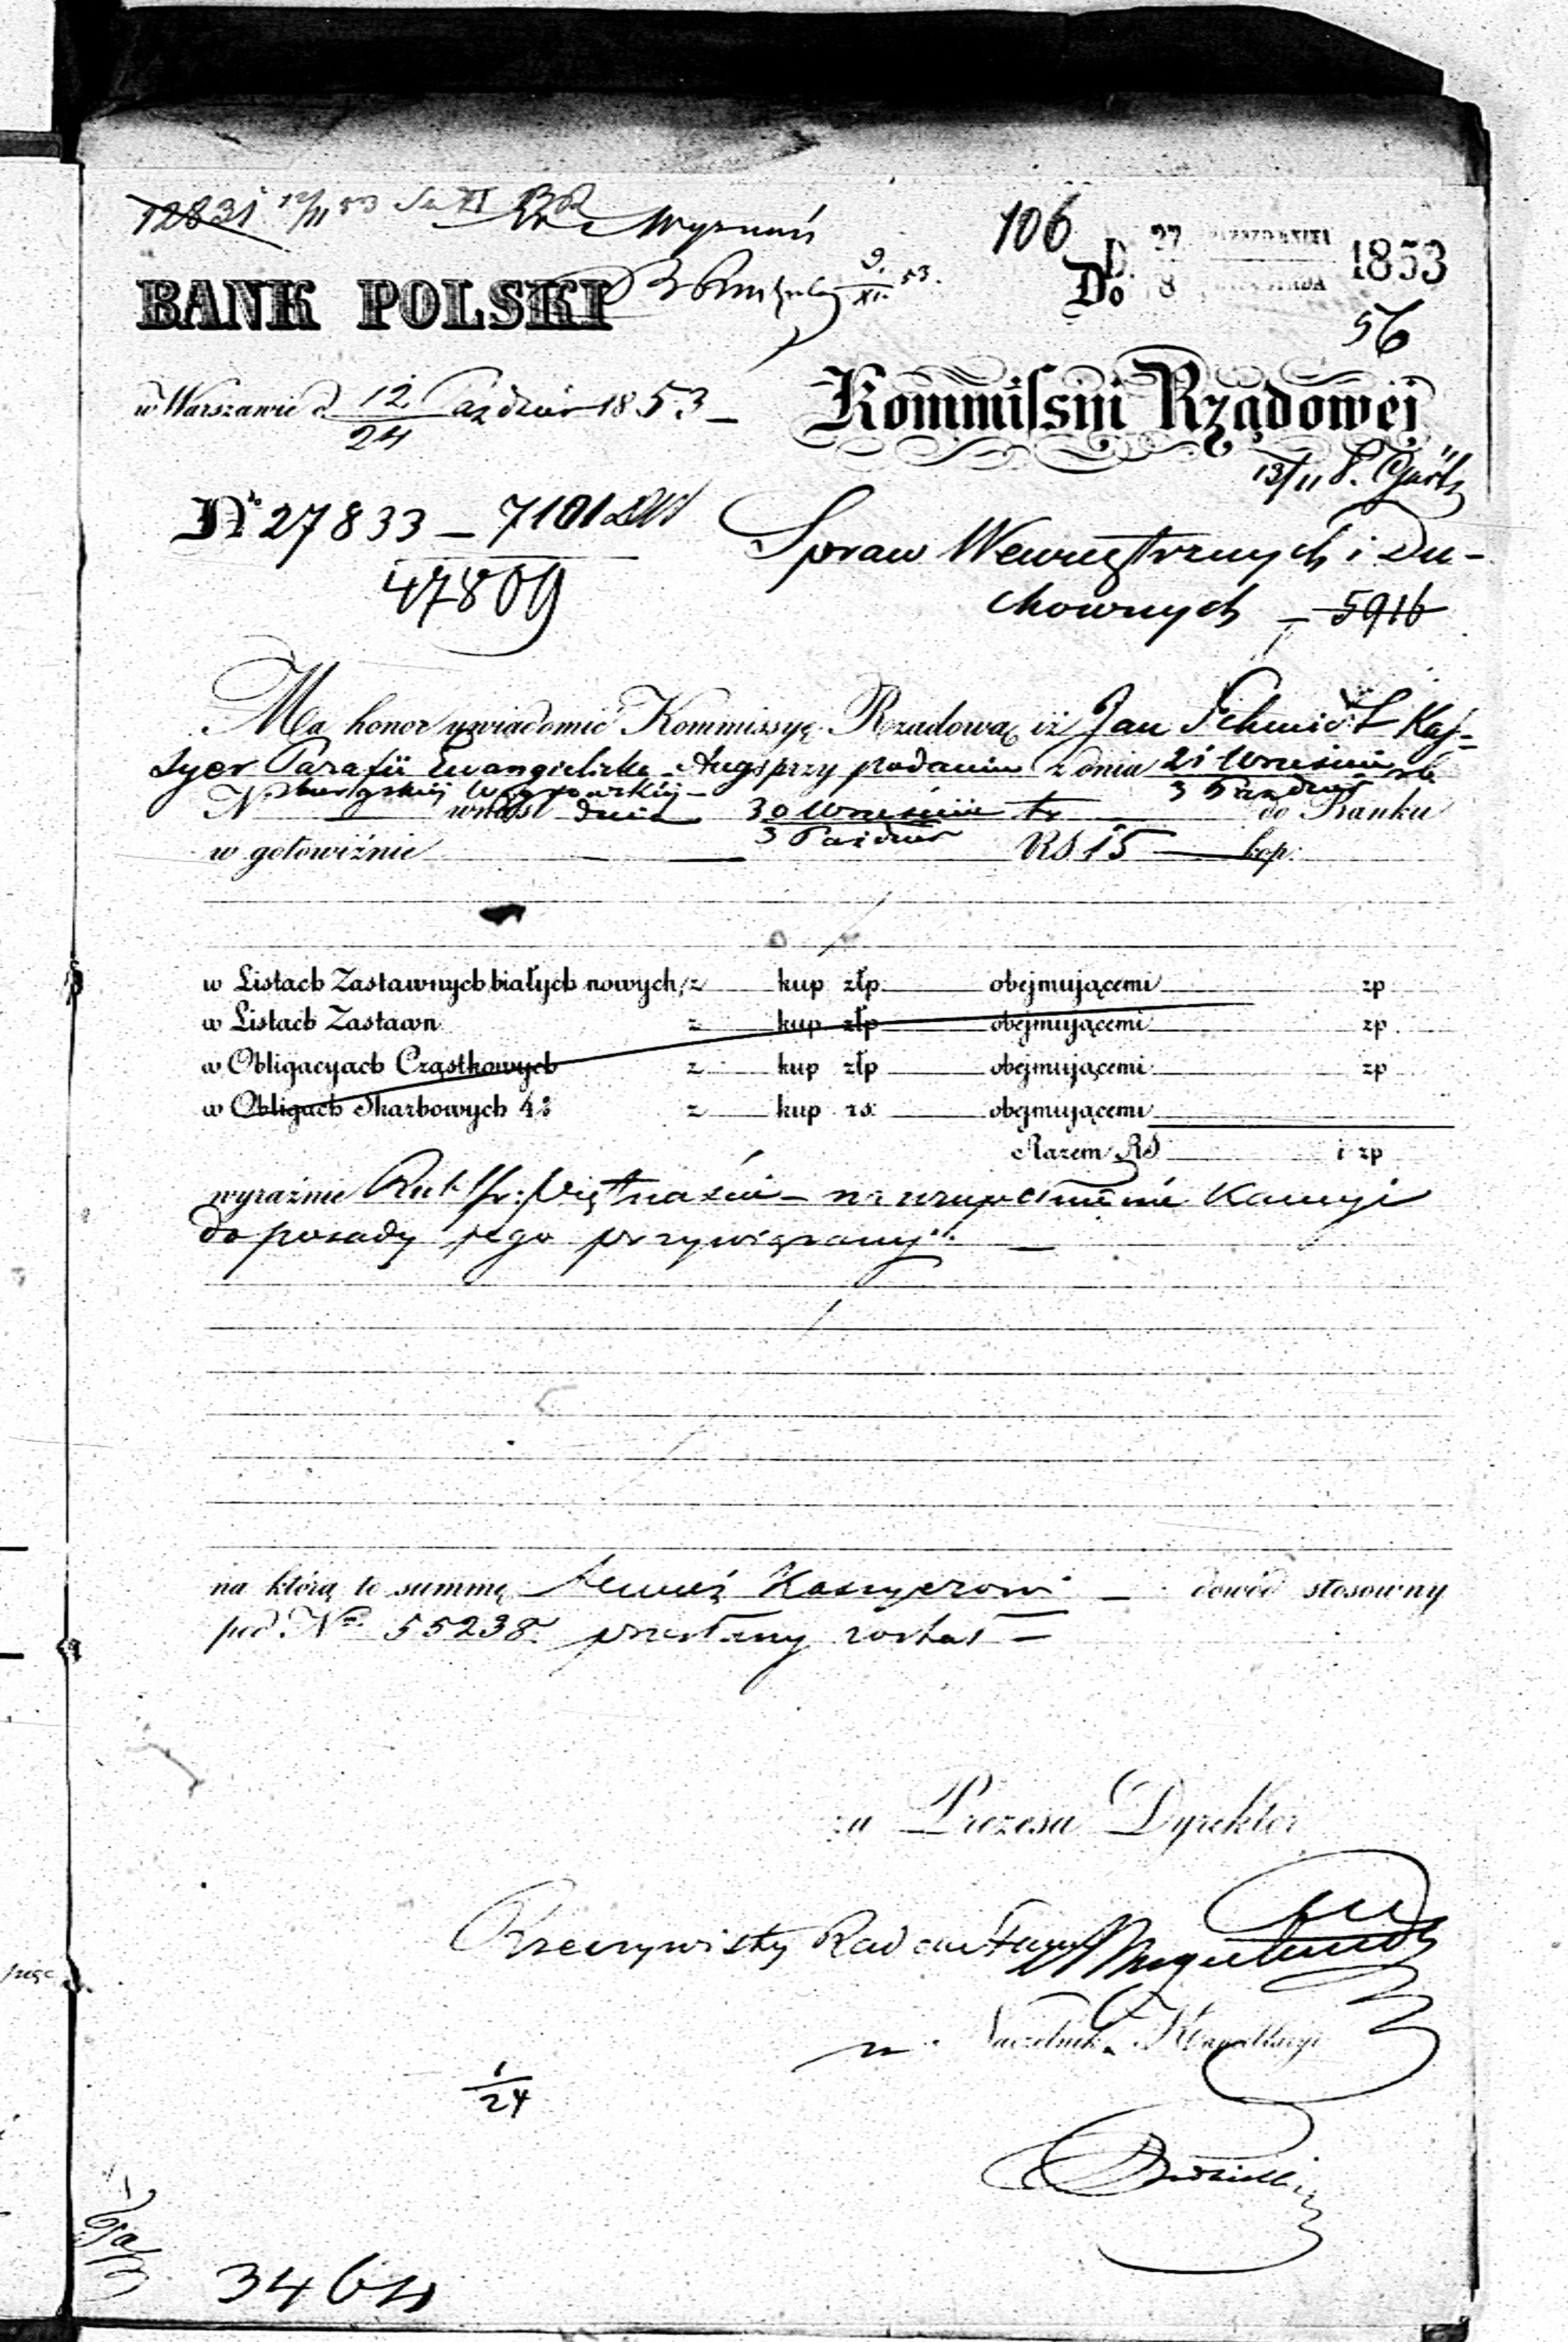 12831 12/11 53
Wyznań
106
D. 27 PAŹDZIERNIKA 1853
8
9/XI 53.
BANK POLSKI
Do
56
w Warszawie d. 12/24 Paździer 1853 –
Kommissyi Rządowej
13/11
No 27833 – 7101
47809
Spraw Wewnętrznych i Du-
chownych – 5916
Ma honor uwiadomić Kommissyę Rządową iż Jan Schmidt Kas-
syer Parafii Ewangielicko-Augs przy podaniu z dnia 21 Wrześnie rb
burgskiej Węgrowskiej – 3 Paździer
N wniósł dnia 30 Wrześnie tr do Banku
3 Paździer
w gotowiźnie RS 15 kop:
w Listach Zastawnych białych nowych, z kup złp obejmującemi zp
w Listach Zastawn z kup złp obejmującemi zp
w Obligacyach Cząstkowych z kup złp obejmującemi zp
w Obligach Skarbowych 4% z kup rs: obejmującemi
Razem RS i zp
wyraźnie Rub sr: piętnaście – na uzupełnienie Kaucyi
do posady jego przywiązanej. –
na którą to summę temuż Kassyerowi – dowód stosowny
pod Nm 55238 przesłany został –
za Prezesa Dyrektor
Rzeczywisty Radca Stanu
Naczelnik Kancellaryi
1/24
3464